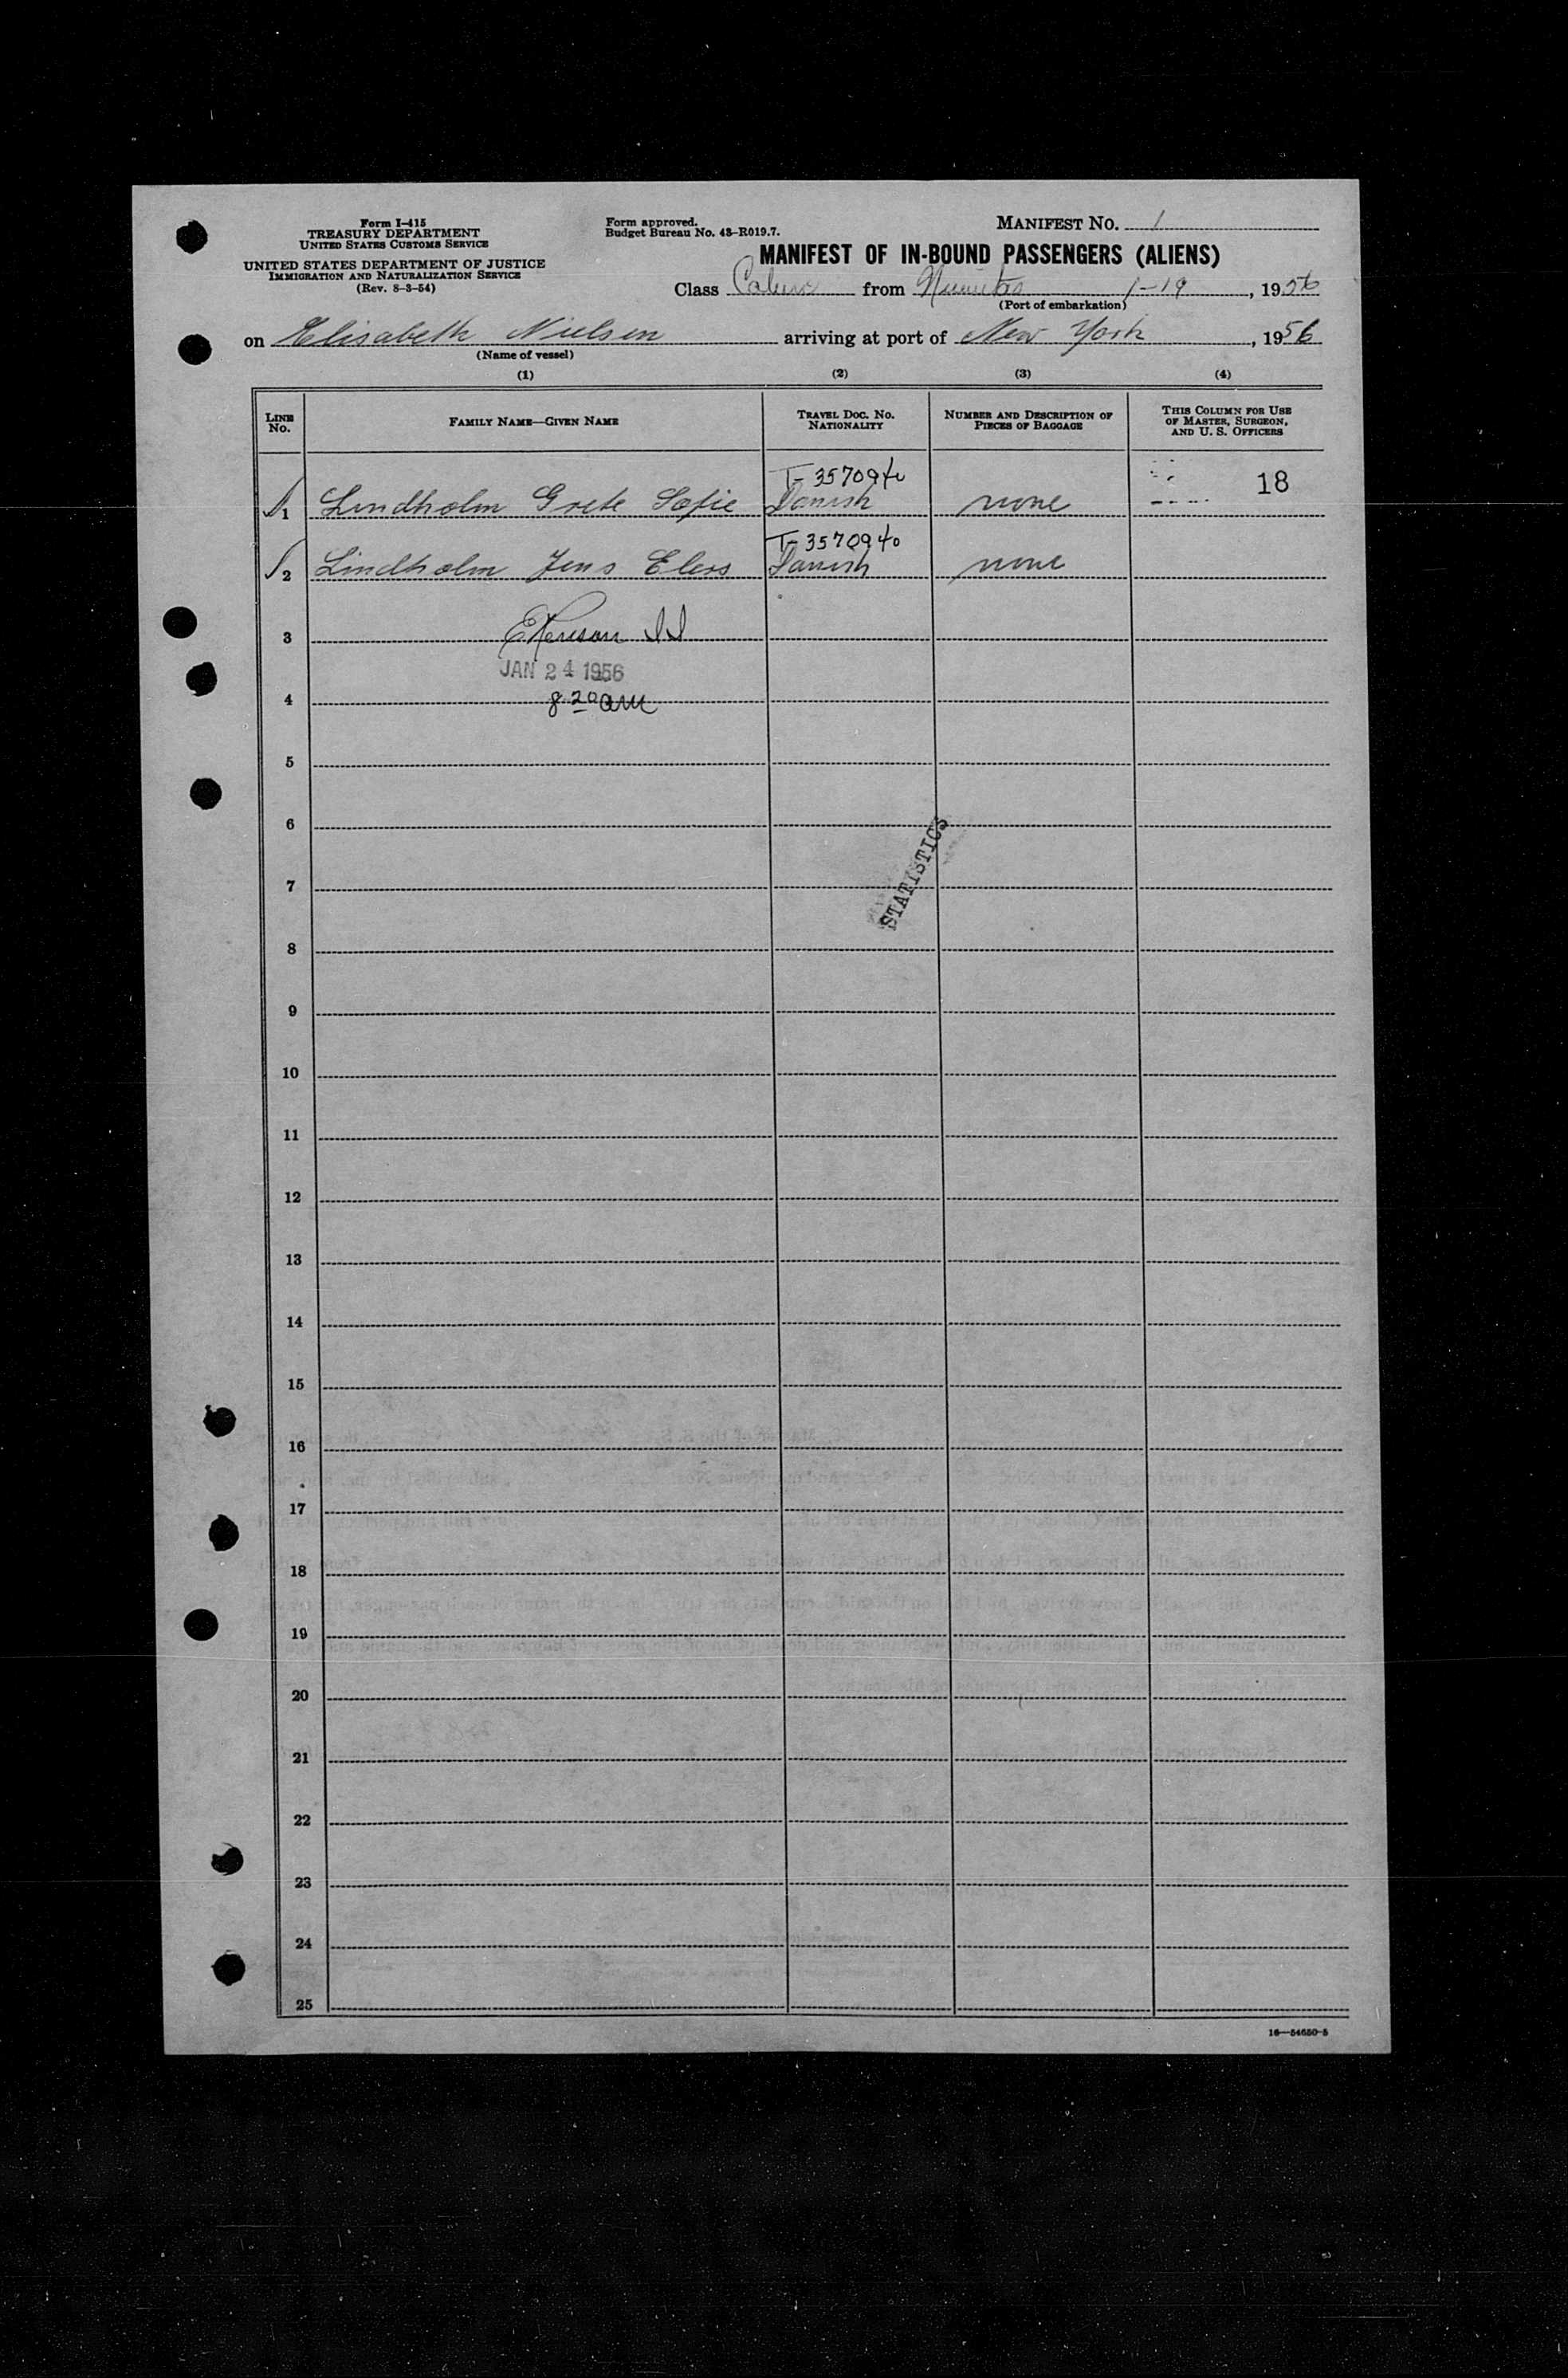 Form I-415
TREASURY DEPARTMENT
UNITED STATES CUSTOMS SERVICE
UNITED STATES DEPARTMENT OF JUSTICE
IMMIGRATION AND NATURALIZATION SERVICE
(Rev. 8-3-54)
Form approved.
Budget Bureau No. 43-R019.7.
MANIFEST NO. 1
MANIFEST OF IN-BOUND PASSENGERS (ALIENS)
Class from 1-19, 1956
(Port of embarkation)
on Elisabeth Nielsen arriving at port of New York, 1956
(Name of vessel)
(1) (2) (3) (4)
LINE NO. FAMILY NAME—GIVEN NAME TRAVEL DOC. NO. NATIONALITY NUMBER AND DESCRIPTION OF PIECES OF BAGGAGE THIS COLUMN FOR USE OF MASTER, SURGEON, AND U. S. OFFICERS
T-357094 18
1 Lindholm Grete Sofie Danish none
T-357094
2 Lindholm Jens Danish none
3
JAN 24 1956
4 8 20 am
5
6
STATISTICS
7
8
9
10
11
12
13
14
15
16
17
18
19
20
21
22
23
24
25
16—54650-5